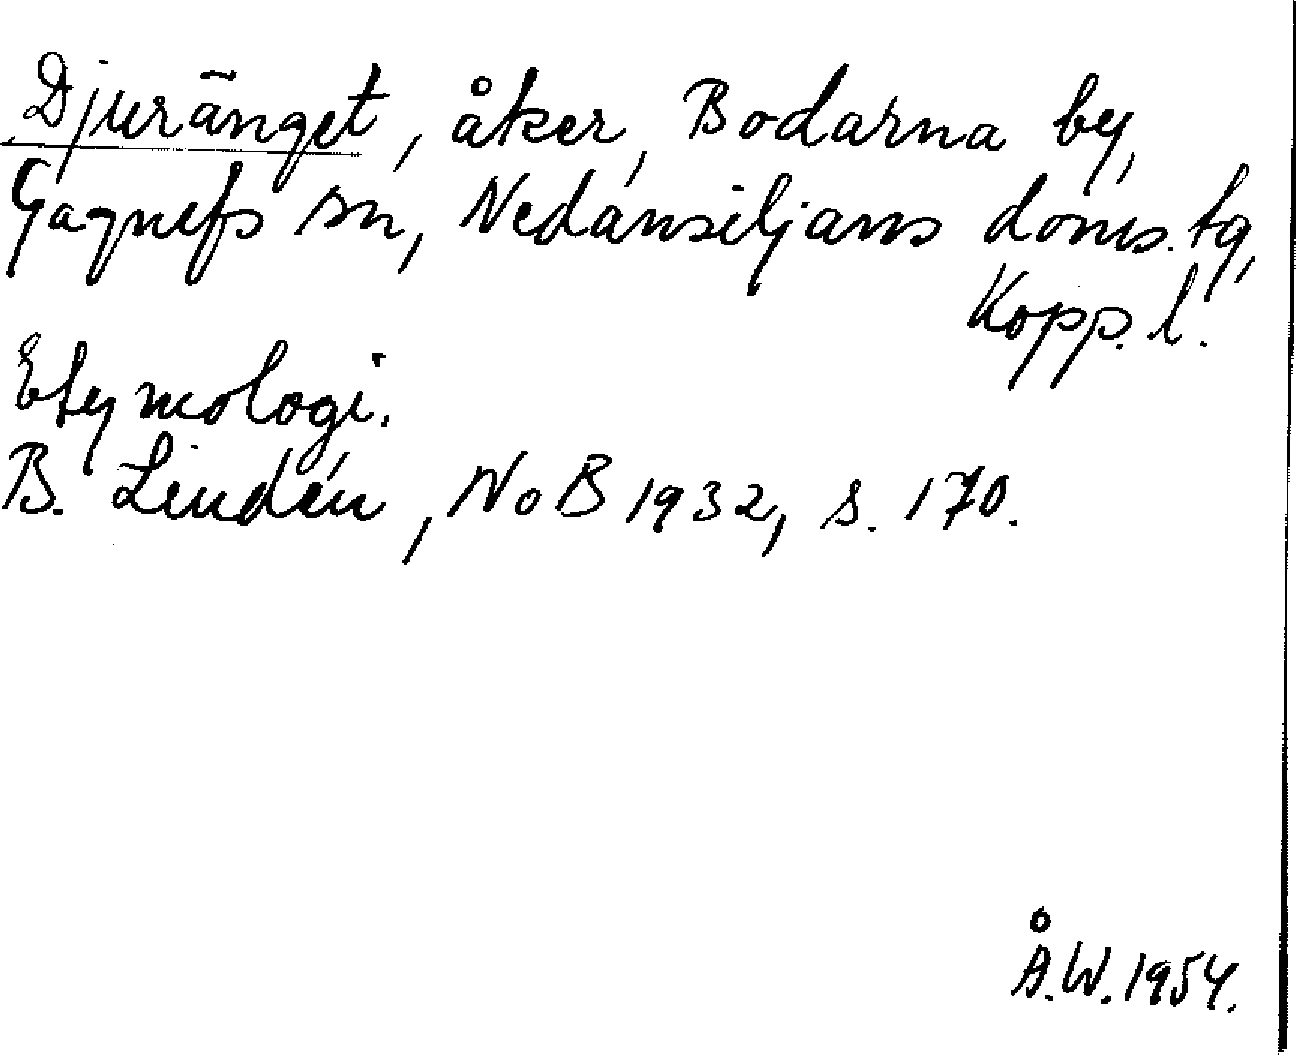 Djuränget, åker, Bodarna by,
Gagnefs sn, Nedansiljans doms.tg,
Kopp. l.
Etymologi.
B. Lindén, NoB 1932, s. 170.
Å.W. 1954.